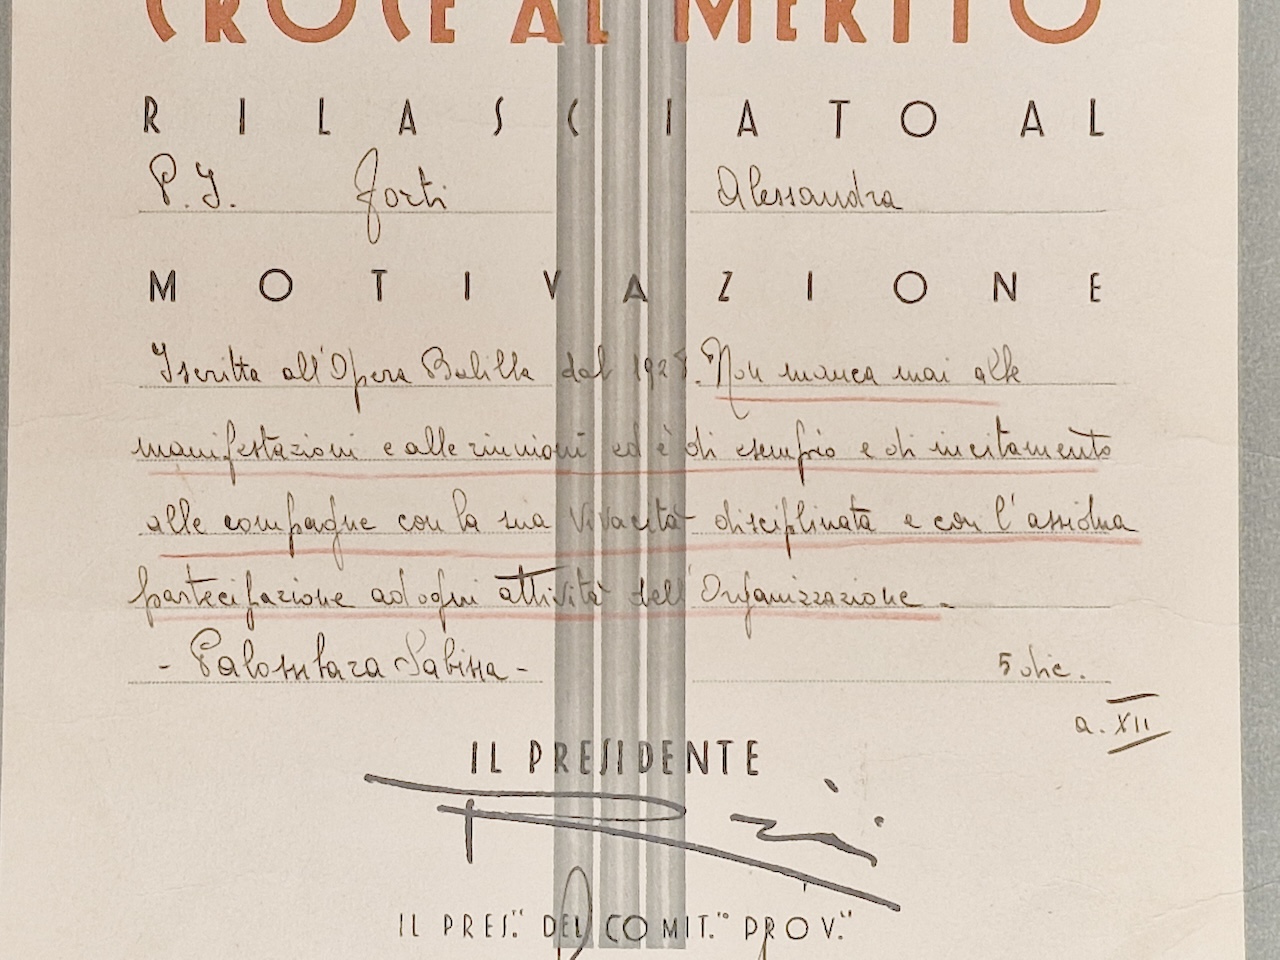 CROCE AL MERITO
RILASCIATO AL
P. I. Forti Alessandra
MOTIVAZIONE
Iscritta all'Opera Balilla dal 1928. Non manca mai alle
manifestazioni e alle riunioni ed è di esempio e di incitamento
alle compagne con la sua vivacità disciplinata e con l'assidua
partecipazione ad ogni attività dell'Organizzazione.
- Palombara Sabina - 5 dic.
a. XII
IL PRESIDENTE
IL PRES.TE DEL COMIT.TO PROV.LE